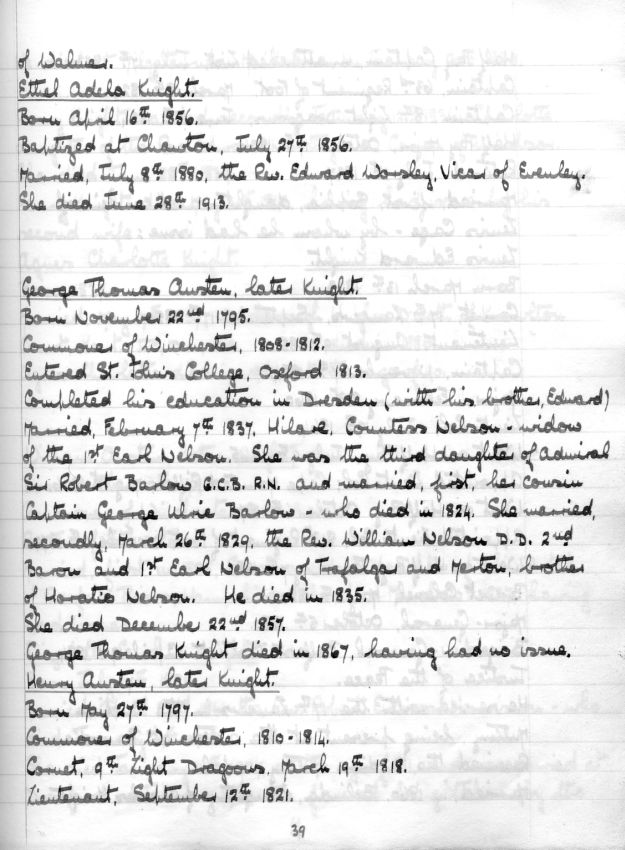 of Walmer.
Ethel Adela Knight.
Born April 16th 1856.
Baptized at Chawton, July 27th 1856.
Married, July 8th 1880, the Rev. Edward Worsley, Vicar of Evenley.
She died June 28th 1913.
George Thomas Austen, later Knight.
Born November 22nd 1795.
Commoner of Winchester, 1808-1812.
Entered St. John's College, Oxford 1813.
Completed his education in Dresden (with his brother, Edward)
Married, February 7th 1837, Hilare, Countess Nelson - widow
of the 1st Earl Nelson. She was the third daughter of Admiral
Sir Robert Barlow G.C.B. R.N. and married, first, her cousin
Captain George Ulric Barlow - who died in 1824. She married,
secondly, March 26th 1829, the Rev. William Nelson D.D. 2nd
Baron and 1st Earl Nelson of Trafalgar and Merton, brother
of Horatio Nelson. He died in 1835.
She died December 22nd 1857.
George Thomas Knight died in 1867, having had no issue.
Henry Austen, later Knight.
Born May 27th 1797.
Commoner of Winchester, 1810-1814.
Cornet, 9th Light Dragoons, March 19th 1818.
Lieutenant, September 12th 1821.
39